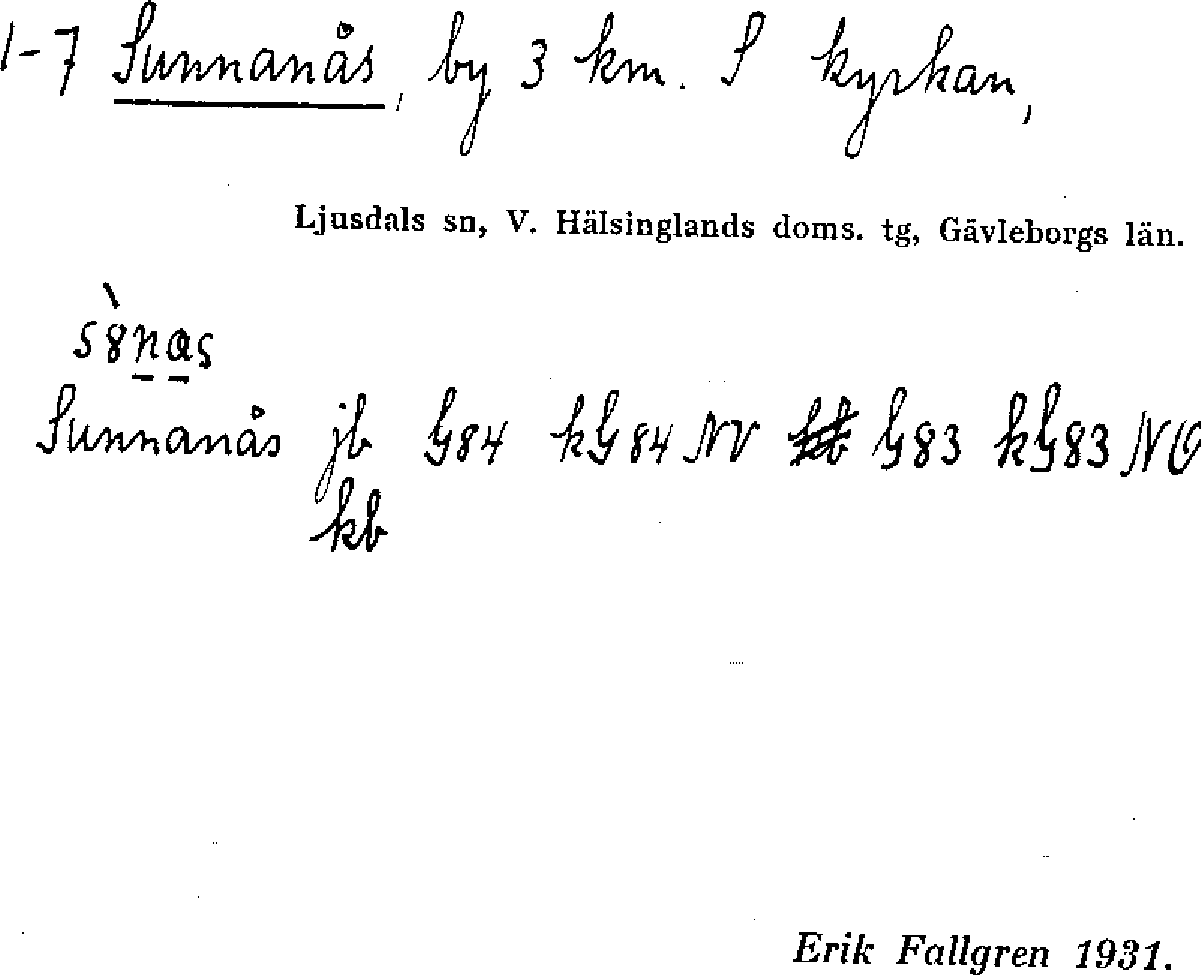 1-7 Sunnanås, by 3 km. S kyrkan,
Ljusdals sn, V. Hälsinglands doms. tg, Gävleborgs län.
s8̀nas
Sunnanås jb G84 kG84 NV G83 kG83 NO
kb
Erik Fallgren 1931.